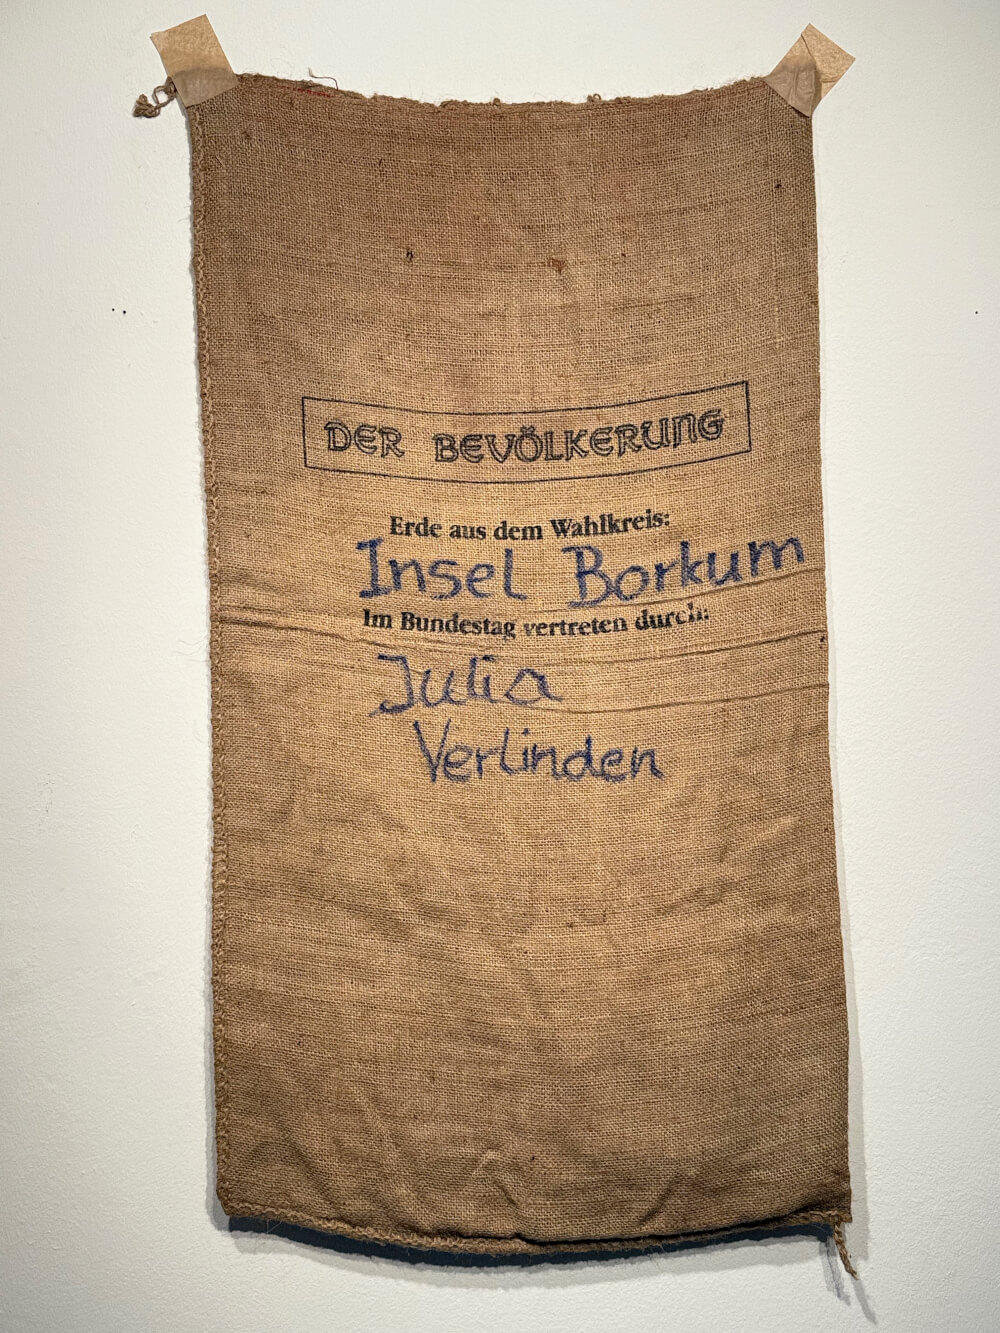 DER BEVÖLKERUNG
Erde aus dem Wahlkreis:
Insel Borkum
Im Bundestag vertreten durch:
Julia
Verlinden